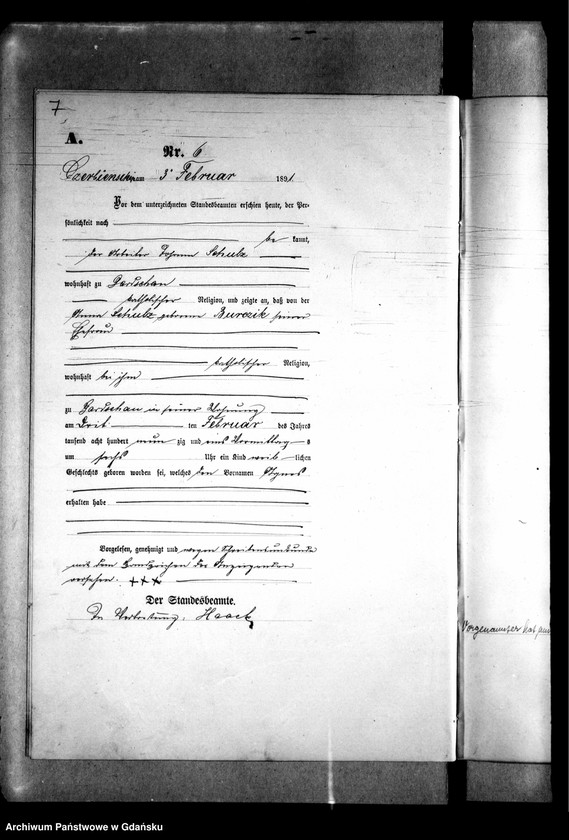 7
A.
Nr. 6
Czersiensk am 3' Februar 1891
Vor dem unterzeichneten Standesbeamten erschien heute, der Per-
sönlichkeit nach
be kannt,
der Arbeiter Johann Schulz
wohnhaft zu Gardschau
katholischer Religion, und zeigte an, daß von der
Anna Schulz geborene Burczik seiner
Ehefrau
katholischer Religion,
wohnhaft bei ihm
zu Gardschau in seiner Wohnung
am Drit ten Februar des Jahres
tausend acht hundert neun zig und eins Vormittag s
um sechs Uhr ein Kind weib lichen
Geschlechts geboren worden sei, welches den Vornamen Agnes
erhalten habe
Vorgelesen, genehmigt und wegen Schreibensunkunde
mit dem Handzeichen des Anzeigenden
versehen. +++
Der Standesbeamte.
In Vertretung, Haack
Vorgenannter hat
Archiwum Państwowe w Gdańsku